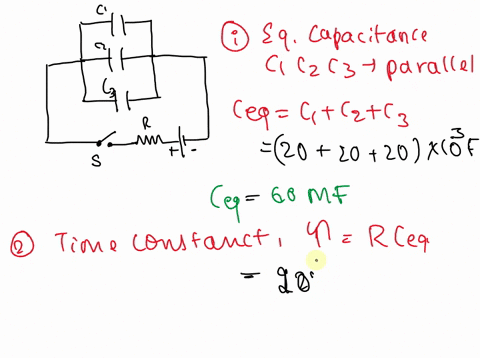 C1
C2
C3
S
R
+ -
① Eq. Capacitance
C1 C2 C3 → parallel
Ceq = C1 + C2 + C3
= (20 + 20 + 20) × 10^3 F
Ceq = 60 MF
② Time constanct, τ = R Ceq
= 20